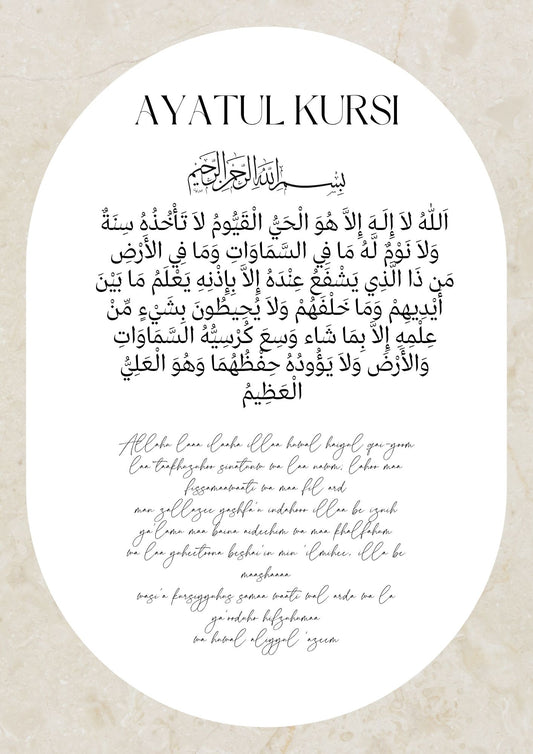 AYATUL KURSI
بِسْمِ اللهِ الرَّحْمٰنِ الرَّحِيْمِ
اَللهُ لاَ إِلَـهَ إِلاَّ هُوَ الْحَيُّ الْقَيُّومُ لاَ تَأْخُذُهُ سِنَةٌ
وَلاَ نَوْمٌ لَّهُ مَا فِي السَّمَاوَاتِ وَمَا فِي الأَرْضِ
مَن ذَا الَّذِي يَشْفَعُ عِنْدَهُ إِلاَّ بِإِذْنِهِ يَعْلَمُ مَا بَيْنَ
أَيْدِيهِمْ وَمَا خَلْفَهُمْ وَلاَ يُحِيطُونَ بِشَيْءٍ مِّنْ
عِلْمِهِ إِلاَّ بِمَا شَاء وَسِعَ كُرْسِيُّهُ السَّمَاوَاتِ
وَالأَرْضَ وَلاَ يَؤُودُهُ حِفْظُهُمَا وَهُوَ الْعَلِيُّ
الْعَظِيمُ
Allahu laaa ilaaha illaa huwal haiyul qai-yoom
laa taakhuzuhoo sinatunw wa laa nawm, lahoo maa
fissamaawaati wa maa fil ard
man zallazee yashfa'u indahoo illaa be iznih
ya'lamu maa baina aideehim wa maa khalfahum
wa laa yuheetoona beshai'in min 'ilmihee, illa be
maashaaaa
wasi'a kursiyyuhus samaa waati wal arda wa la
ya'oodoho hifzuhumaa
wa huwal aliyyul 'azeem